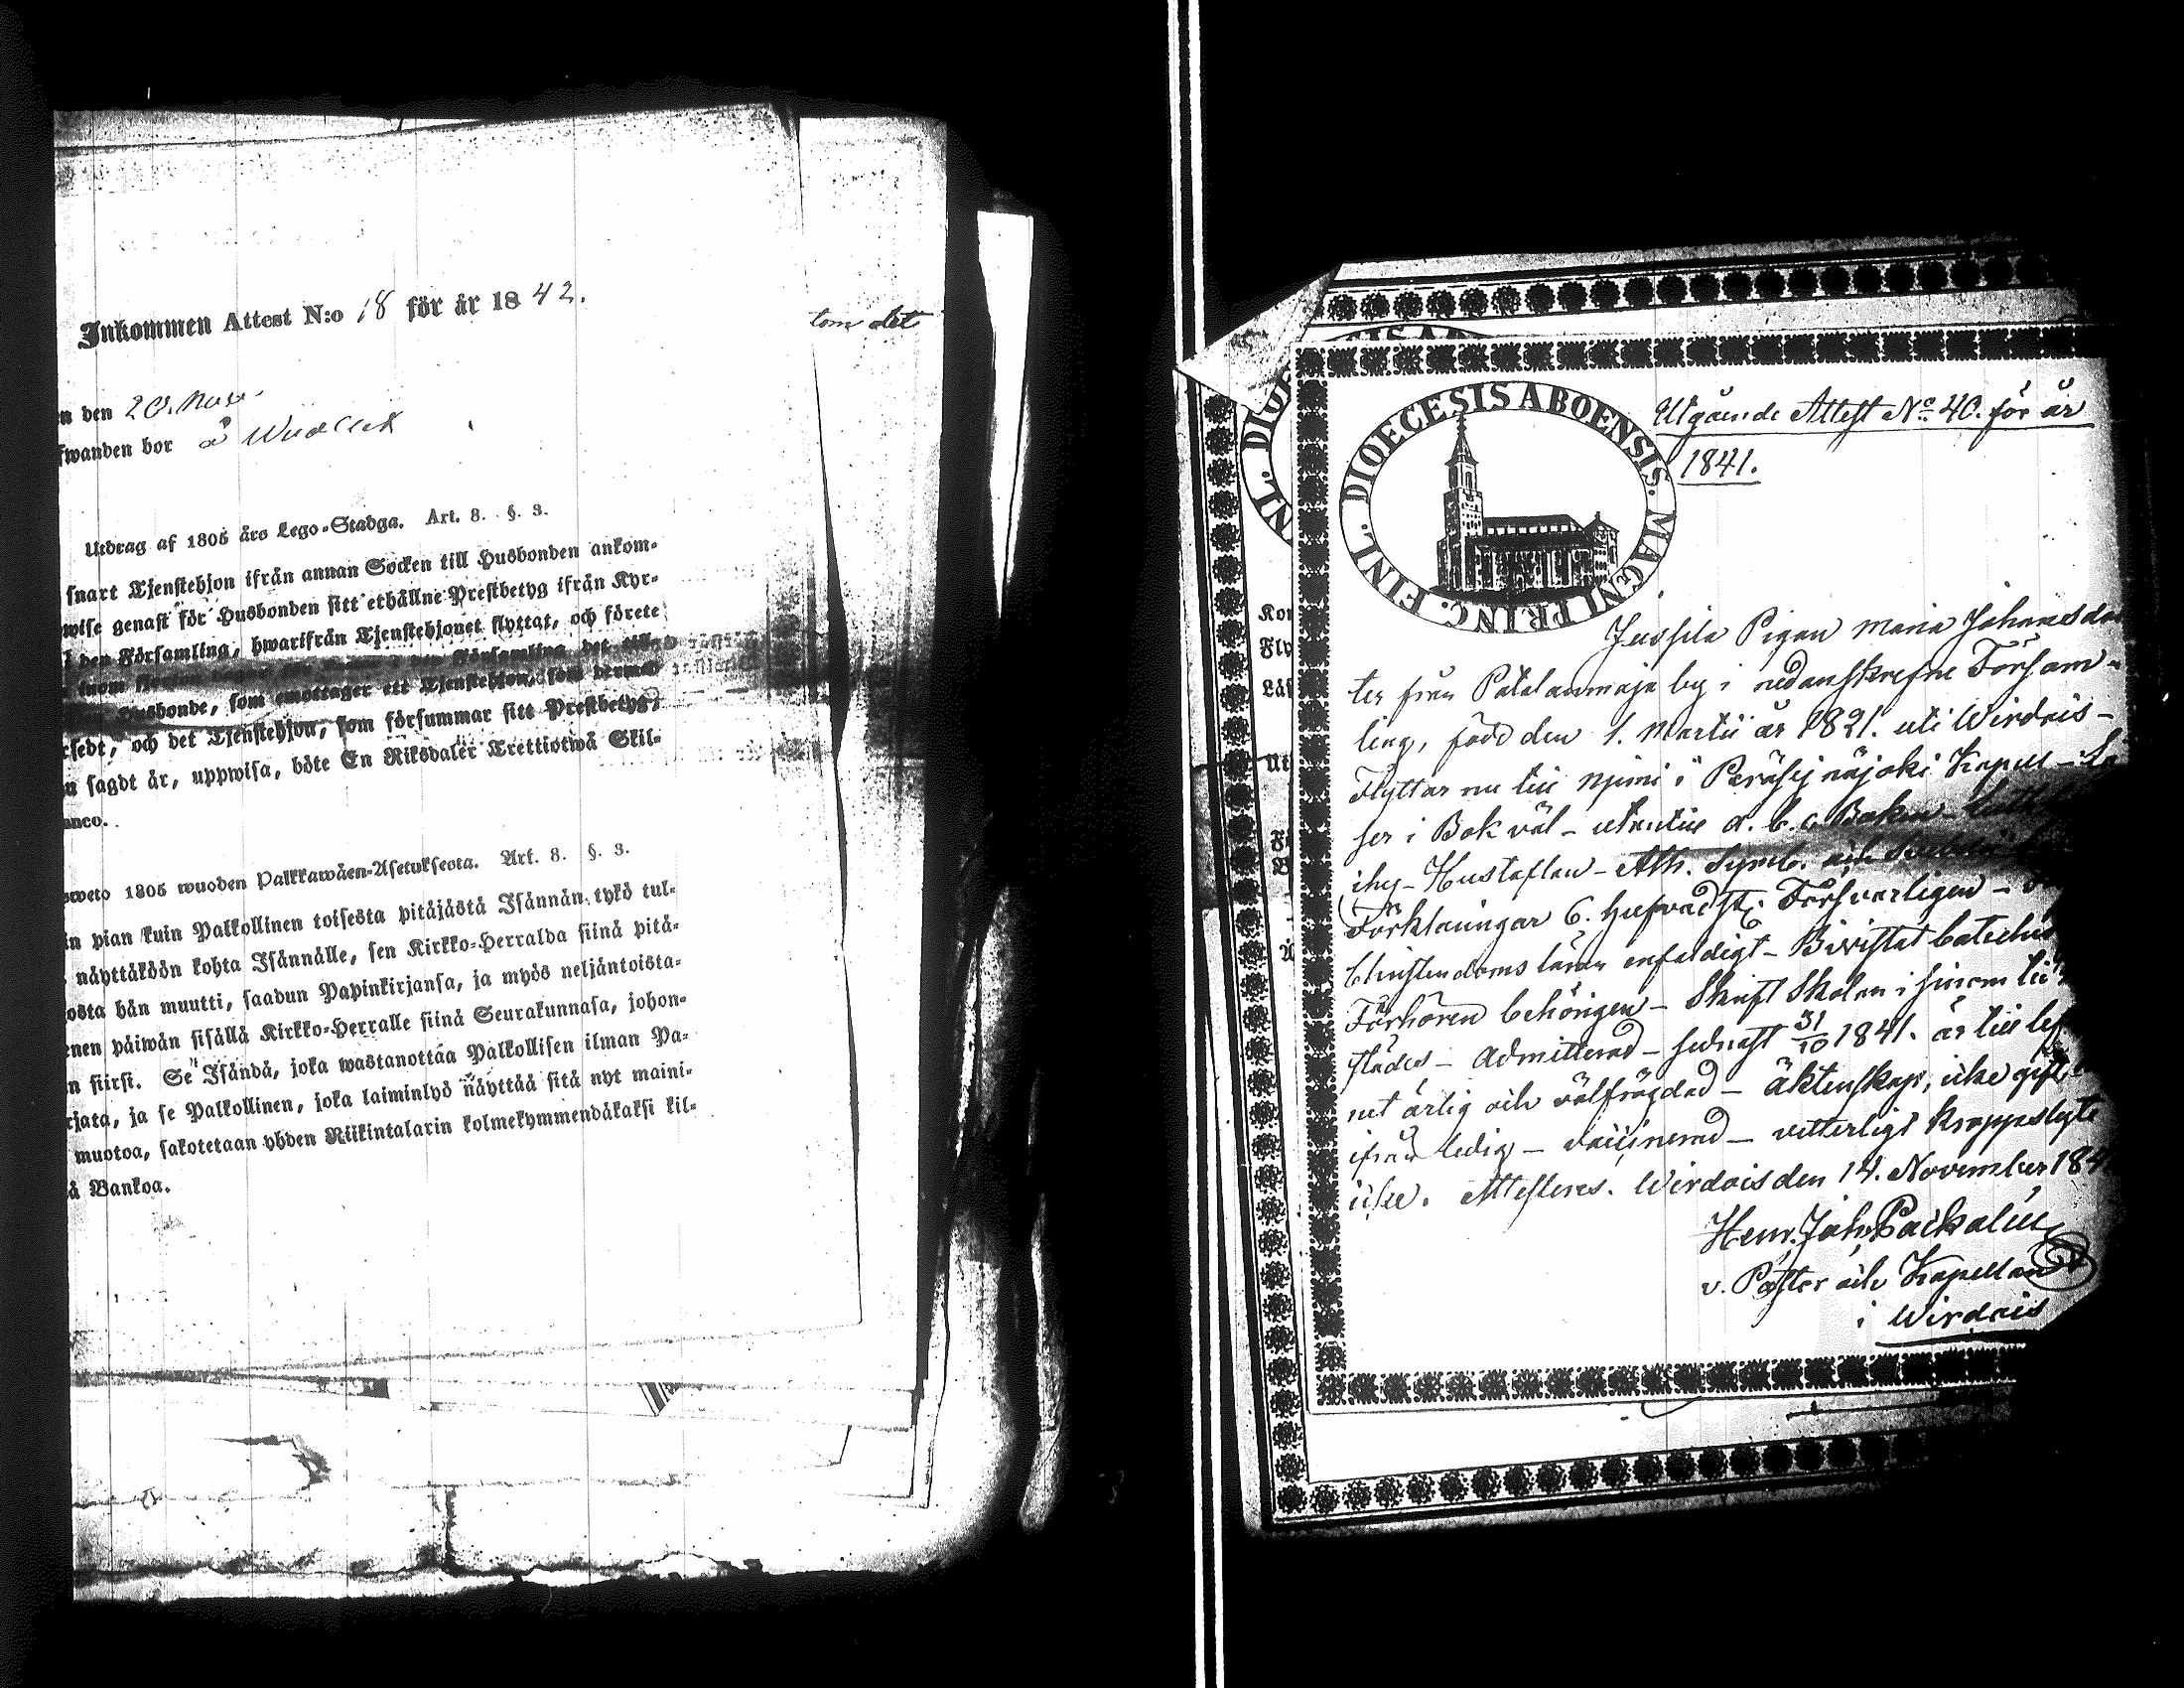 Inkommen Attest N:o 18 för år 1842.
tom det
n den 20.
fwanden bor å
Utdrag af 1805 års Lego-Stadga. Art. 8. §. 3.
snart Tjenstehjon ifrån annan Socken till Husbonden ankom-
wise genast för Husbonden sitt erhållne Prestbetyg ifrån Kyr-
den Församling, hwarifrån Tjenstehjonet flyttat, och förete
inom Församling det
Husbonde, som emottager ett Tjenstehjon, som
rsedt, och det Tjenstehjon, som försummar sitt Prestbetyg,
n sagdt är, uppwisa, böte En Riksdaler Trettiotwå Skil-
anco.
sweto 1805 wuoden Palkkawäen-Asetuksesta. Art. 8. §. 3.
in pian kuin Palkollinen toisesta pitäjästä Isännän tykö tul-
näyttäköön kohta Isännälle, sen Kirkko-Herralda siinä pitä-
osta hän muutti, saadun Papinkirjansa, ja myös neljäntoista-
enen päiwän sisällä Kirkko-Herralle siinä Seurakunnasa, johon-
n siirsi. Se Isändä, joka wastanottaa Palkollisen ilman Pa-
rjata, ja se Palkollinen, joka laiminlyö näyttää sitä nyt maini-
muotoa, sakotetaan yhden Riikintalarin kolmekymmendäkaksi kil-
ä Bankoa.
DIOECESIS ABOENSIS. MAGNI PRINC. FINL.
Utgående Attest No 40. för år
1841.
Jussila Pigan Maria Johansdot
ter från Patalanmaja by i nedanskrefne Församl-
ling, född den 1. Martii år 1821. uti Wirdois-
Flyttar nu till i Peräsejnäjoki Kapell -
ser i Bok väl - utantill a. b. c. Boken -
Hustaflan - Ath. Symb. och
Förklaringar 6. Hufvudst. Försvarligen -
Christendoms läran enfaldigt - Bivistat Catechis
Förhören behörigen - Skrift Skolan i sinom tid
städes - Admitterad - sednast 31/10 1841. är till lef
net ärlig och välfrägdad - äktenskap, icke gift
ifrån ledig - vaccinerad - vetterligt kroppslyte
icke. Attesteres. Wirdois den 14. November 184
Henr. Joh. Packalén
v. Pastor och Kapellan
i Wirdois
Kor
Fly
Läs
Ut